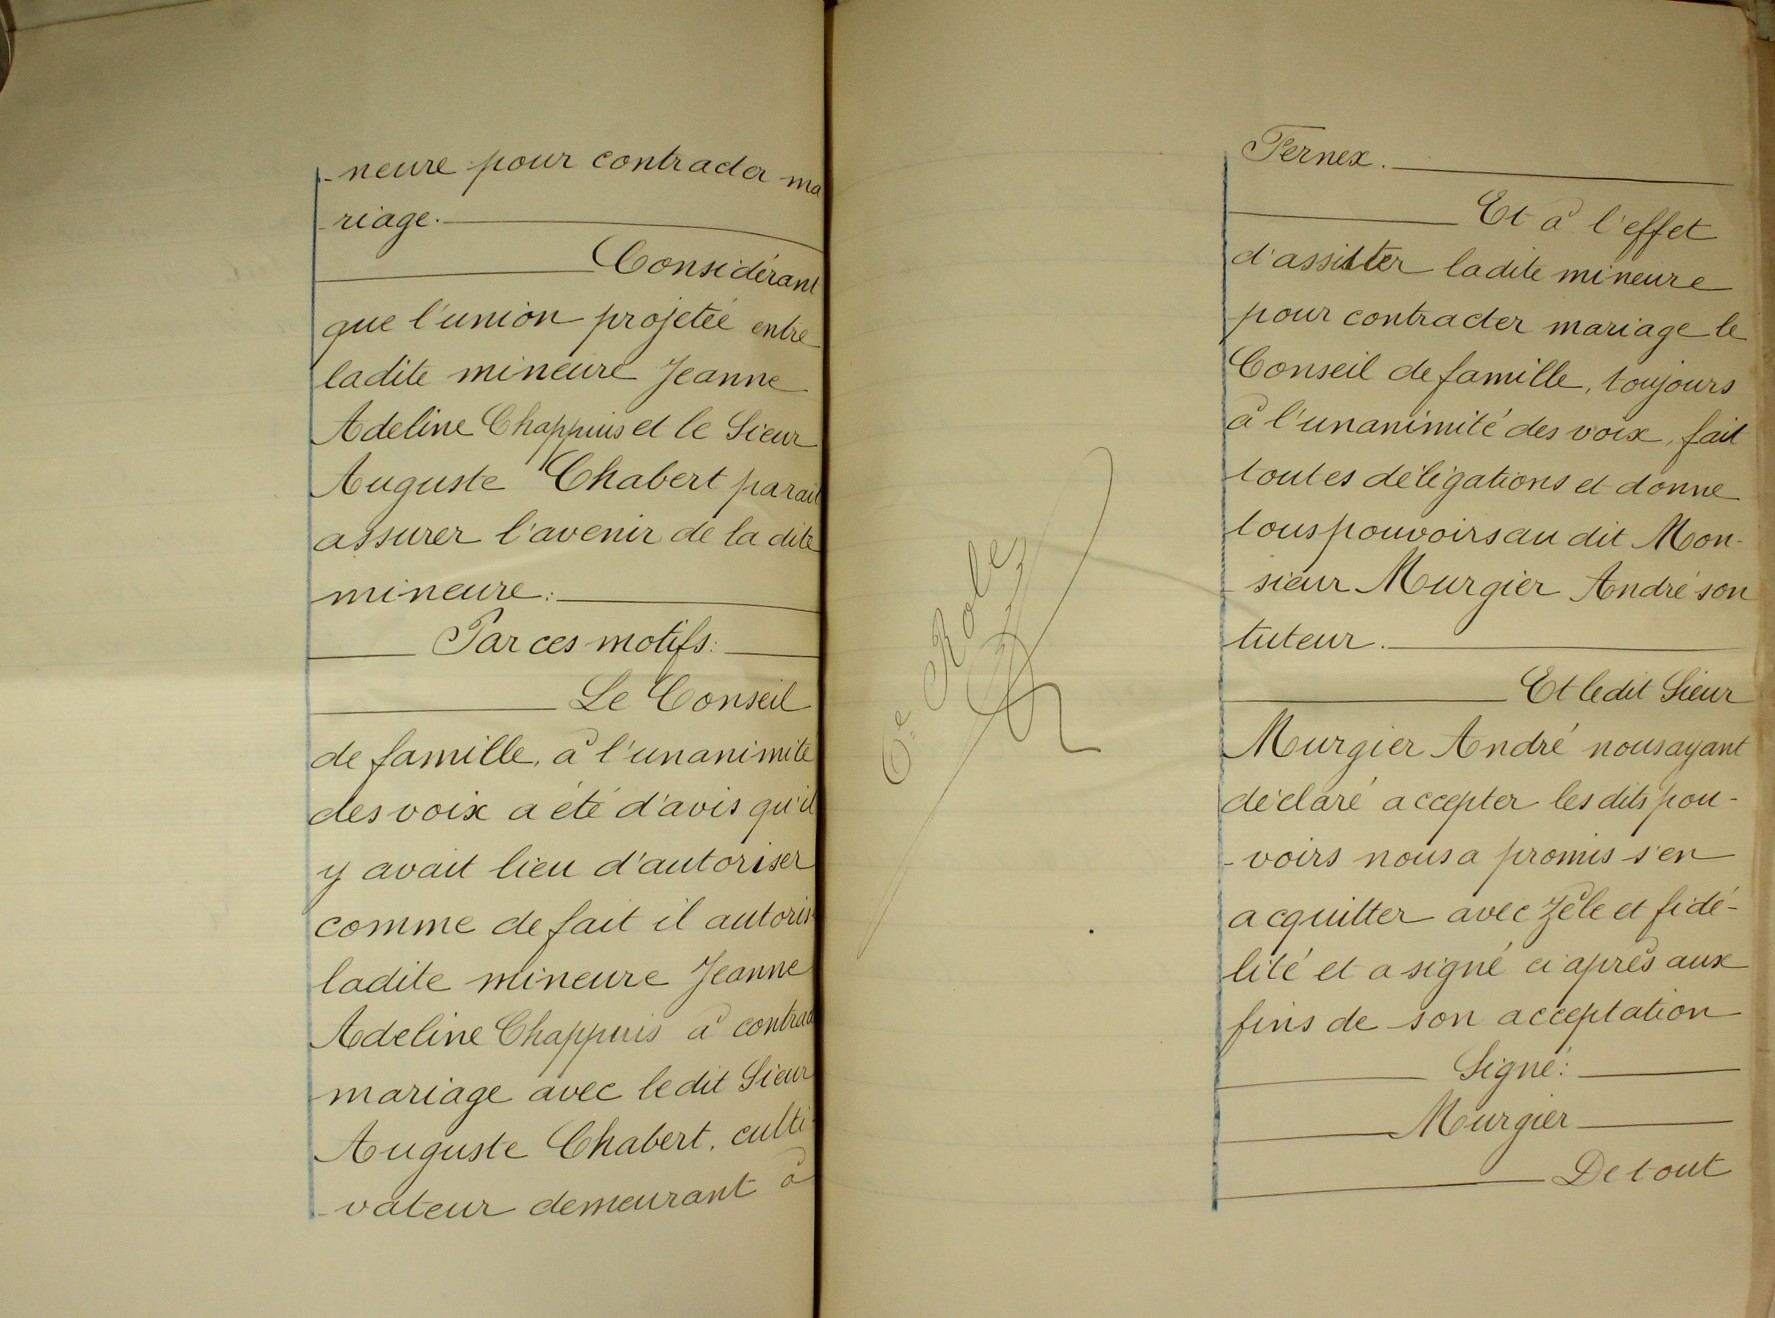 -neure pour contracter ma
-riage.
Considérant
que l'union projetée entre
ladite mineure Jeanne
Adeline Chappuis et le Sieur
Auguste Chabert parait
assurer l'avenir de la dite
mineure:
Par ces motifs:
Le Conseil
de famille, à l'unanimité
des voix a été d'avis qu'il
y avait lieu d'autoriser
comme de fait il autoris
ladite mineure Jeanne
Adeline Chappuis à contrac
mariage avec ledit Sieur
Auguste Chabert, culti-
-vateur demeurant à
6.e Role
Fernex.
Et à l'effet
d'assister ladite mineure
pour contracter mariage le
Conseil de famille, toujours
à l'unanimité des voix, fait
toutes délégations et donne
tous pouvoirs au dit Mon-
-sieur Murgier André son
tuteur.
Et ledit Sieur
Murgier André nous ayant
déclaré accepter les dits pou-
-voirs nous a promis s'en
acquitter avec zèle et fidé-
lité et a signé ci après aux
fins de son acceptation
Signé:
Murgier
De tout